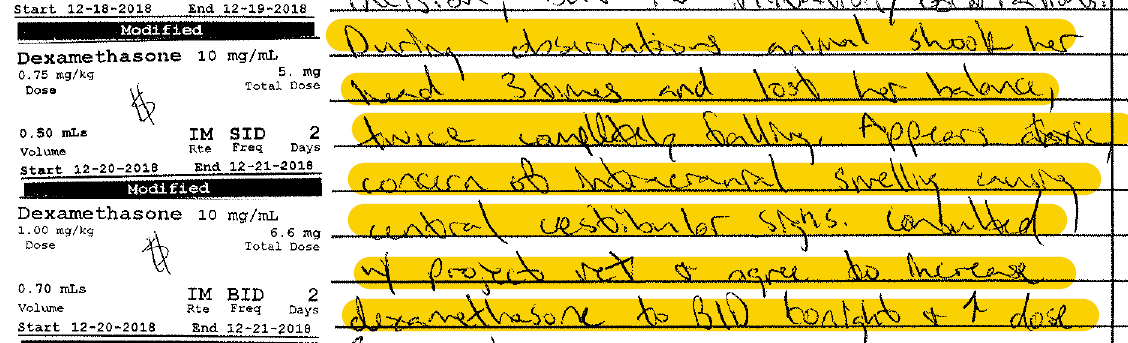 Start 12-18-2018 End 12-19-2018
Modified
Dexamethasone 10 mg/mL
0.75 mg/kg 5. mg
Dose Total Dose
0.50 mLs IM SID 2
Volume Rte Freq Days
Start 12-20-2018 End 12-21-2018
Modified
Dexamethasone 10 mg/mL
1.00 mg/kg 6.6 mg
Dose Total Dose
0.70 mLs IM BID 2
Volume Rte Freq Days
Start 12-20-2018 End 12-21-2018
During observations animal shook her
head 3 times and lost her balance,
twice completely falling. Appears ataxic
concern of intracranial swelling causing
central vestibular signs. Consulted
w/ project vet + agree to increase
dexamethasone to BID tonight + ↑ dose